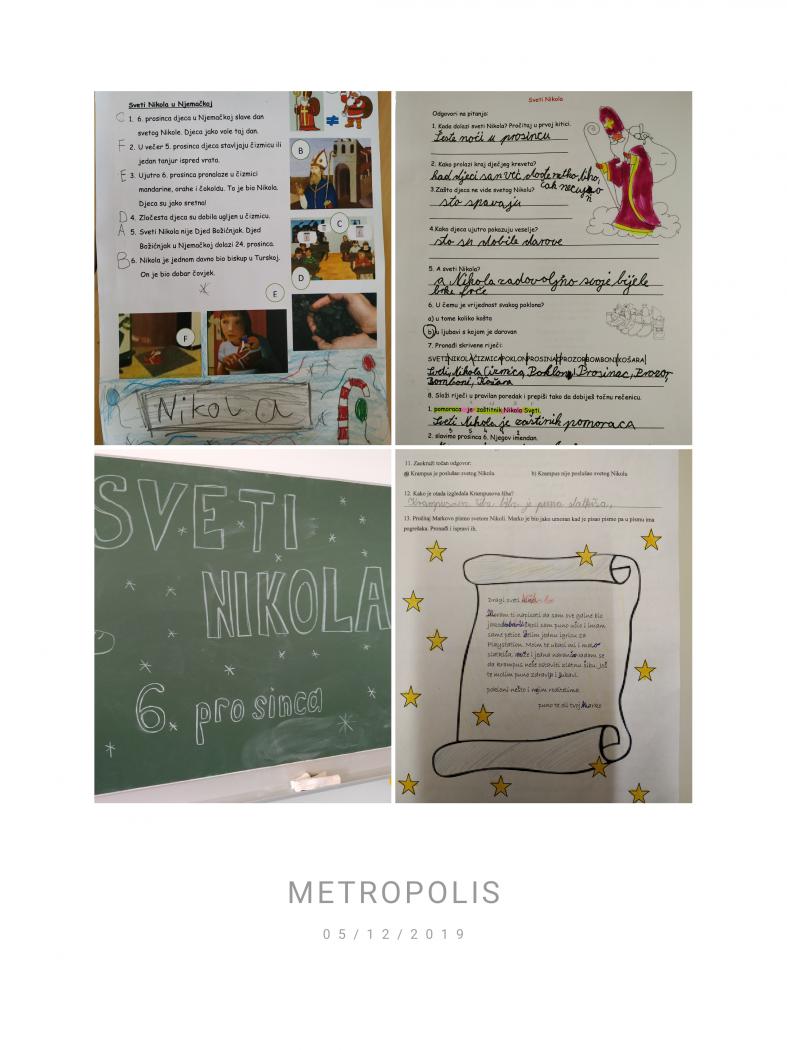 Sveti Nikola u Njemačkoj
C 1. 6. prosinca djeca u Njemačkoj slave dan
svetog Nikole. Djeca jako vole taj dan.
F 2. U večer 5. prosinca djeca stavljaju čizmicu ili
jedan tanjur ispred vrata.
E 3. Ujutro 6. prosinca pronalaze u čizmici
mandarine, orahe i čokoladu. To je bio Nikola.
Djeca su jako sretna!
D 4. Zločesta djeca su dobila ugljen u čizmicu.
A 5. Sveti Nikola nije Djed Božićnjak. Djed
Božićnjak u Njemačkoj dolazi 24. prosinca.
B 6. Nikola je jednom davno bio biskup u Turskoj.
On je bio dobar čovjek.
B
C
D
E
F
Nikola
Sveti Nikola
Odgovori na pitanja:
1. Kada dolazi sveti Nikola? Pročitaj u prvoj kitici.
Šeste noći u prosincu
2. Kako prolazi kraj dječjeg kreveta?
kad djeci san već dođe tiho,
3.Zašto djeca ne vide svetog Nikolu?
što spavaju
4.Kako djeca ujutro pokazuju veselje?
što su dobile darove
5. A sveti Nikola?
a Nikola zadovoljno svoje bijele
brke
6. U čemu je vrijednost svakog poklona?
a) u tome koliko košta
b) u ljubavi s kojom je darovan
7. Pronađi skrivene riječi:
SVETI|NIKOLA|ČIZMICA|POKLON|PROSINAC|PROZOR|BOMBONI|KOŠARA|
Sveti, Nikola Čizmica, Poklon, Prosinac, Prozor,
Bomboni, Košara
8. Složi riječi u pravilan poredak i prepiši tako da dobiješ točnu rečenicu.
1. pomoraca je zaštitnik Nikola Sveti.
Sveti Nikola je zaštinik pomoraca
2. slavimo prosinca 6. Njegov imendan.
SVETI
NIKOLA
6. prosinca
11. Zaokruži točan odgovor:
a) Krampus je poslušao svetog Nikolu b) Krampus nije poslušao svetog Nikolu
12. Kako je otada izgledala Krampusova šiba?
Krampusova šiba je puna slatkiša.
13. Pročitaj Markovo pismo svetom Nikoli. Marko je bio jako umoran kad je pisao pismo pa u pismu ima
pogrešaka. Pronađi i ispravi ih.
Dragi sveti
Moram ti napisati da sam ove godine bio
jako školi sam puno učio i imam
same petice. Želim jednu igricu za
Playstation. Molim te ubaci mi i malo
slatkiša, može i jedna naranča. Nadam se
da krampus neće ostaviti zlatnu šibu. Još
te molim puno zdravlja i ljubavi.
pokloni nešto i mojim roditeljima.
puno te voli tvoj Marko
METROPOLIS
05/12/2019